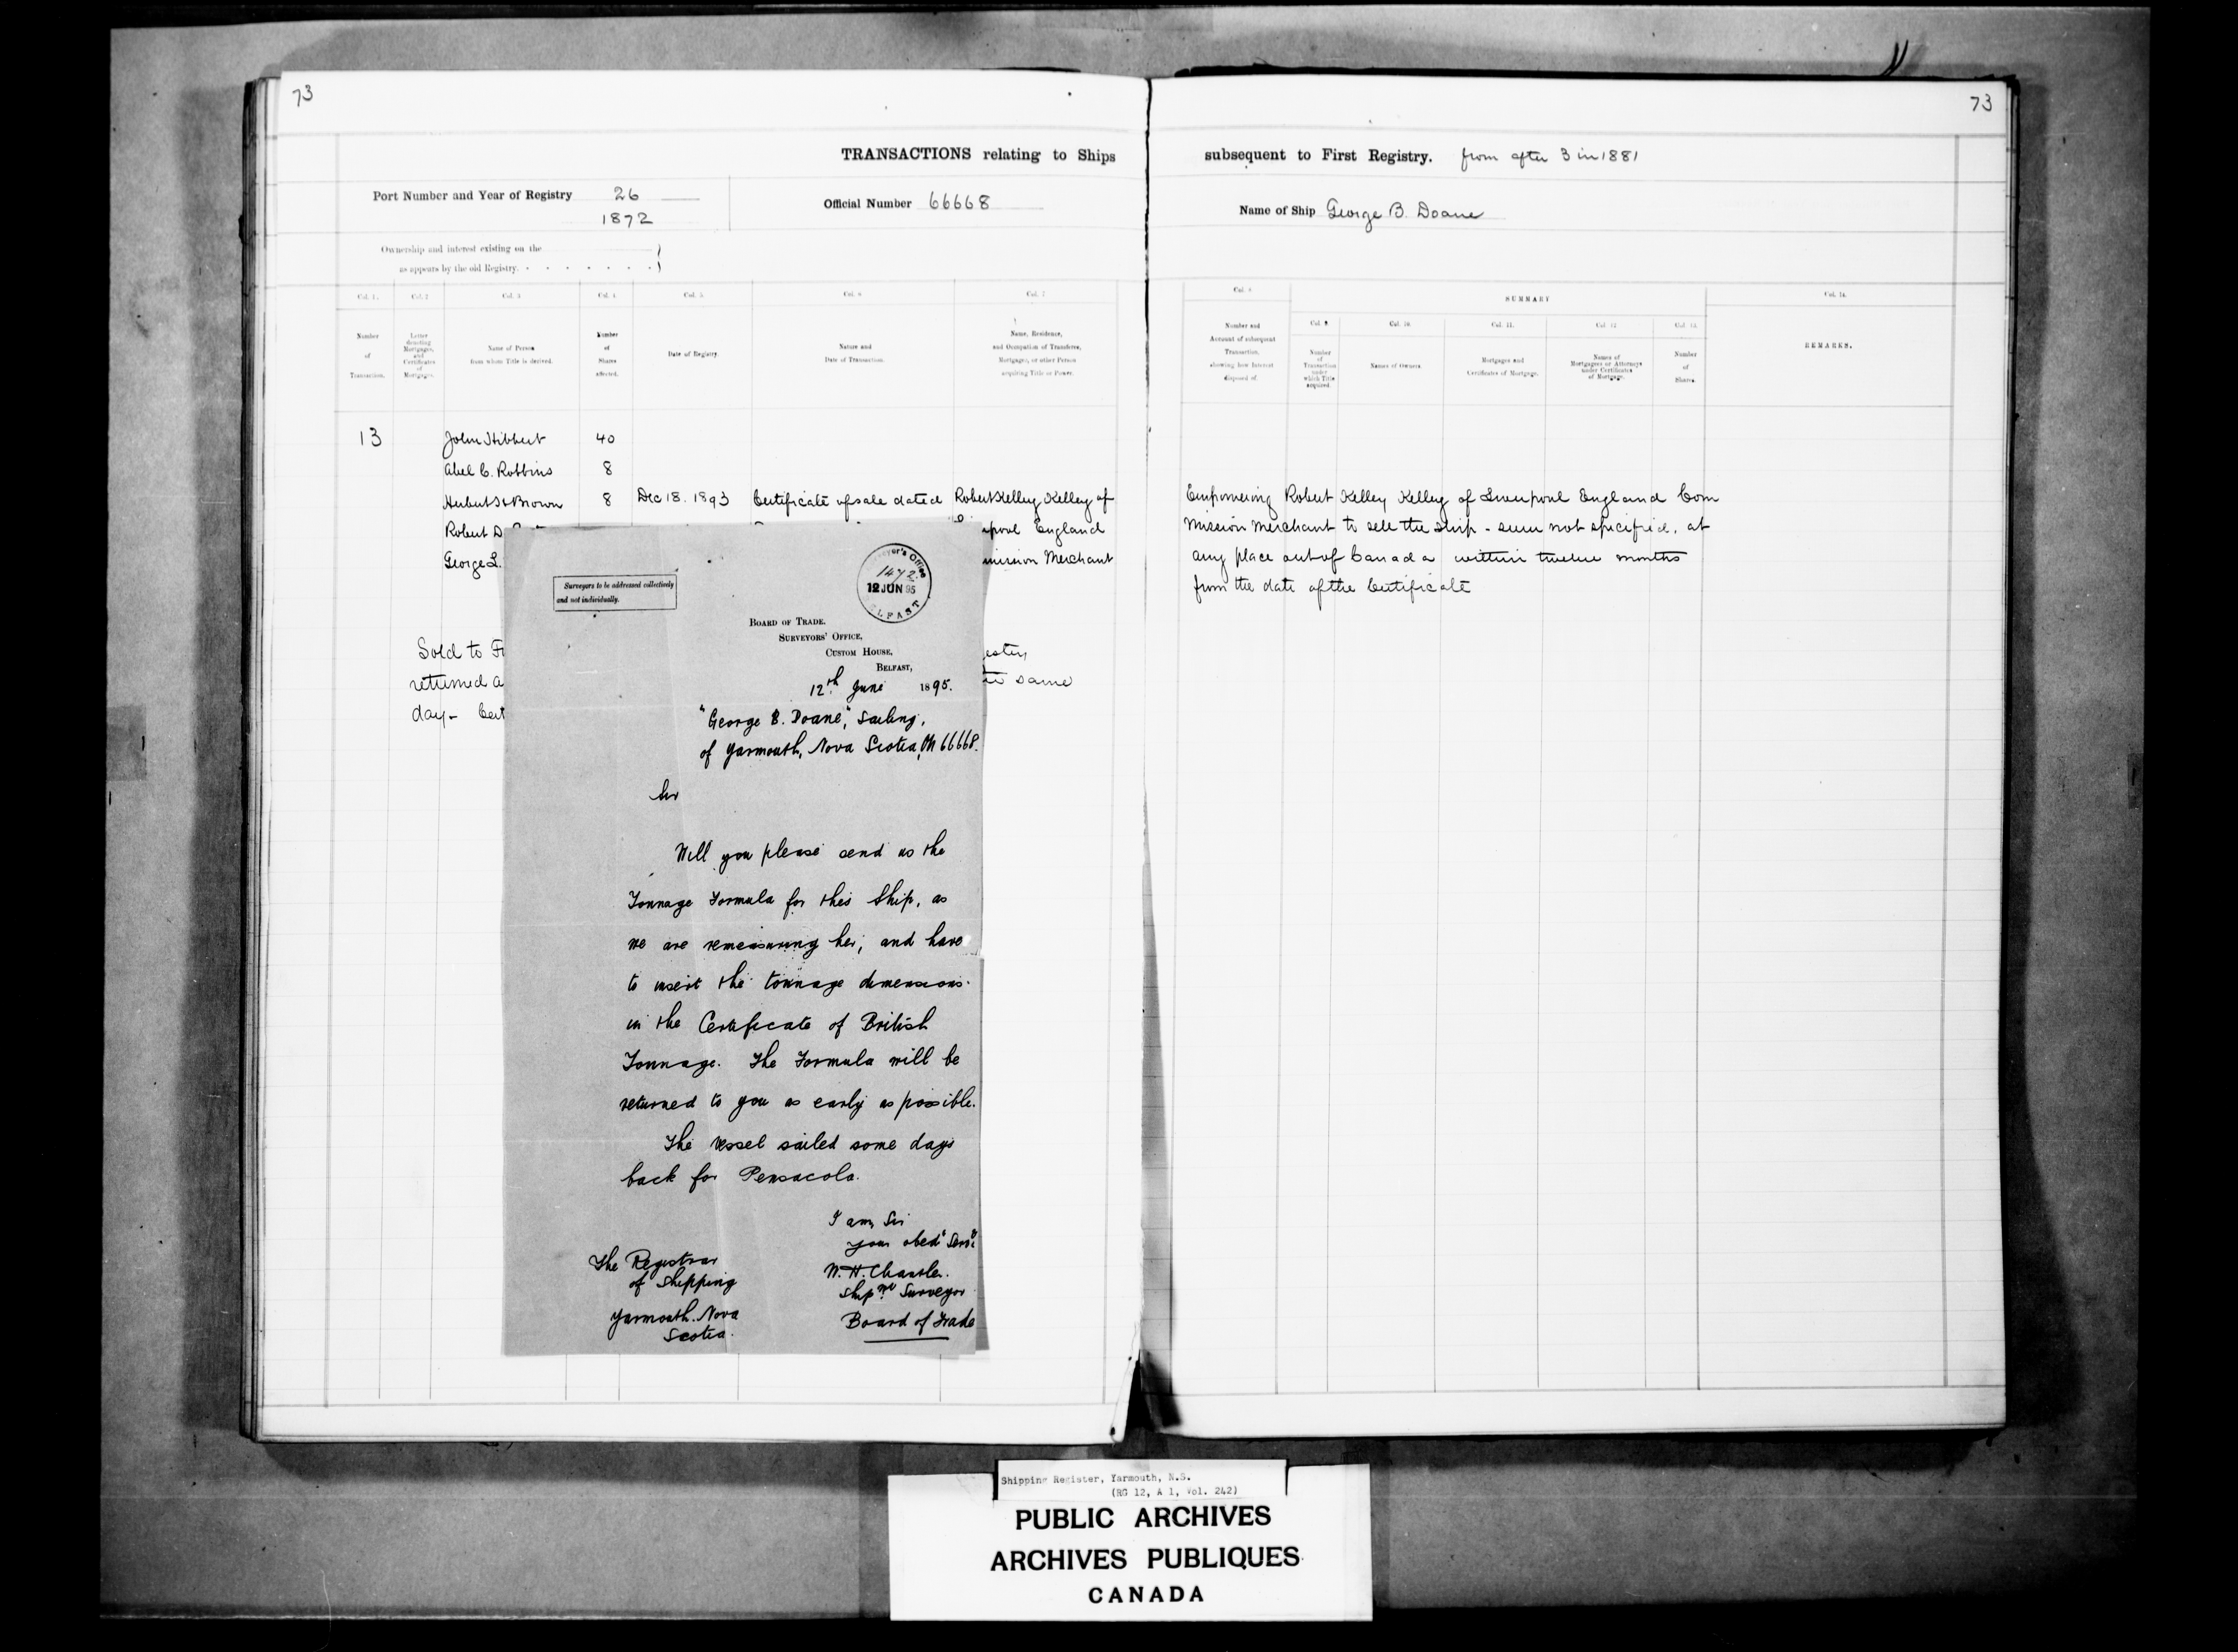 73
TRANSACTIONS relating to Ships
Port Number and Year of Registry 26
1872
Official Number 66668
Ownership and interest existing on the
as appears by the old Registry.
Col. 1.
Col. 2
Col. 3
Col. 4
Col. 5
Col. 6
Col. 7
Number
of
Transaction.
Letter
denoting
Mortgages,
and
Certificates
of
Mortgages.
Name of Person
from whom Title is derived.
Number
of
Shares
affected.
Date of Registry.
Nature and
Date of Transaction.
Name, Residence,
and Occupation of Transferee,
Mortgagee, or other Person
acquiring Title or Power.
13 John Hibbert 40
Abel C. Robbins 8
Herbert H Brown 8 Dec 18. 1893 Certificate of sale dated Robert Kelley Kelley of
Robert D. England
George L. mission Merchant
Sold to
returned same
day -
Surveyors to be addressed collectively
and not individually.
Surveyor's Office
1472
12 JUN 95
BELFAST
BOARD OF TRADE.
SURVEYORS' OFFICE,
CUSTOM HOUSE,
BELFAST,
12th June 1895.
"George B. Doane," Sailing,
of Yarmouth, Nova Scotia, ON 66668.
Sir
Will you please send us the
Tonnage Formula for this Ship, as
we are remeasuring her, and have
to insert the tonnage dimensions
in the Certificate of British
Tonnage. The Formula will be
returned to you as early as possible.
The vessel sailed some days
back for Pensacola.
I am, Sir
your obedt Servt
W. H. Chantler.
Shipwt Surveyor
Board of Trade
The Registrar
of Shipping
Yarmouth. Nova
Scotia.
73
subsequent to First Registry. from after 3 in 1881
Name of Ship George B. Doane
Col. 8
SUMMARY
Col. 14.
Col. 9.
Col. 10
Col. 11.
Col. 12
Col. 13.
Number and
Account of subsequent
Transaction,
showing how Interest
disposed of.
Number
of
Transaction
under
which Title
acquired.
Names of Owners.
Mortgages and
Certificates of Mortgage.
Names of
Mortgagees or Attorneys
under Certificates
of Mortgage.
Number
of
Shares.
REMARKS.
Empowering Robert Kelley Kelley of Liverpool England Com
mission Merchant to sell the ship - sum not specified, at
any place out of Canada within twelve months
from the date of the Certificate
Shipping Register, Yarmouth, N.S.
(RG 12, A 1, Vol. 242)
PUBLIC ARCHIVES
ARCHIVES PUBLIQUES
CANADA